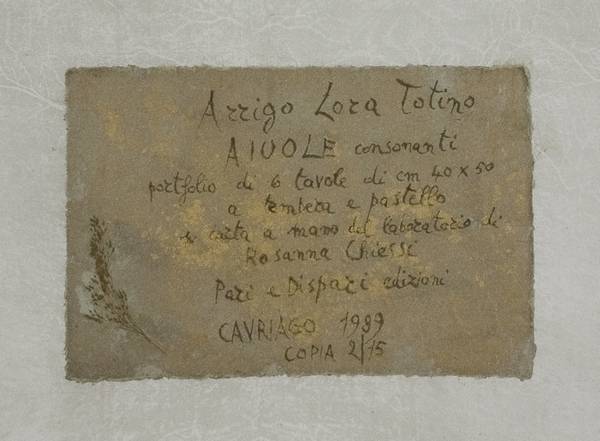 Arrigo Lora Totino
AIUOLE consonanti
portfolio di 6 tavole di cm 40 x 50
a tempera e pastello
su carta a mano del laboratorio di
Rosanna Chiessi
Pari e Dispari edizioni
CAVRIAGO 1989
COPIA 2/15